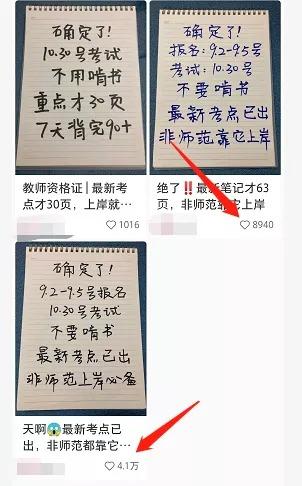 确定了!
10.30号考试
不用啃书
重点才30页
7天背完90+
教师资格证|最新考
点才30页，上岸就…
1016
确定了!
报名:9.2-9.5号
考试:10.30号
不要啃书
最新考点已出
非师范靠它上岸
绝了‼最新笔记才63
页，非师范靠它上岸
8940
确定了!
9.2-9.5号报名
10.30号考试
不要啃书
最新考点已出
非师范上岸必备
天啊😱最新考点已
出，非师范都靠它…
4.1万